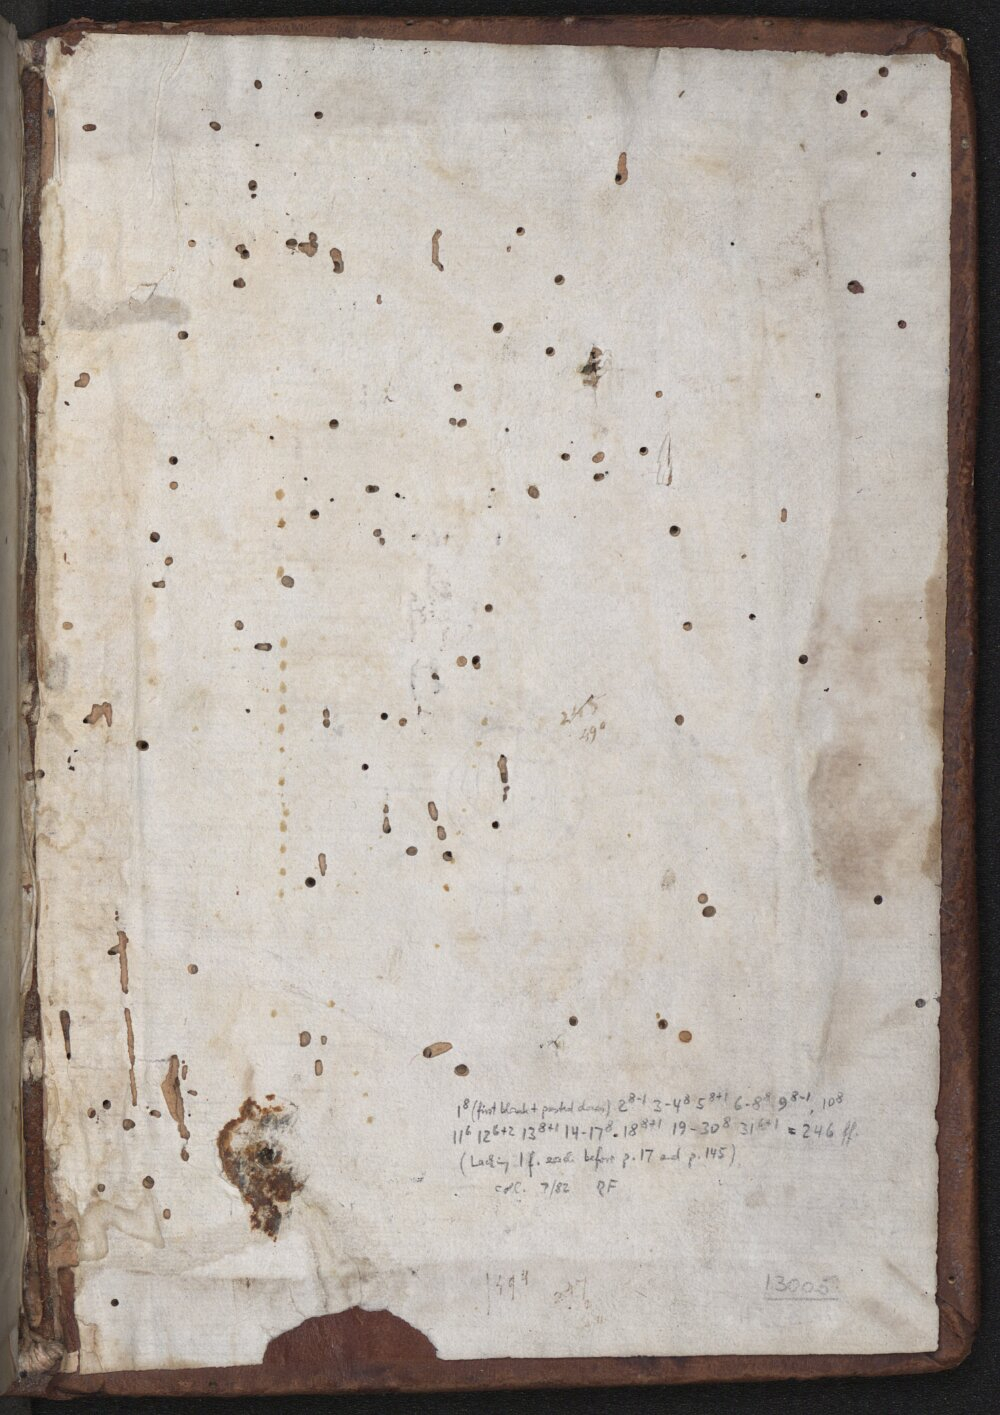 245
49⁰
1⁸ (first blank + pasted down) 2⁸⁻¹ 3-4⁸ 5⁸⁺¹ 6-8⁸ 9⁸⁻¹, 10⁸
11⁶ 12⁶⁺² 13⁸⁺¹ 14-17⁸. 18⁸⁺¹ 19-30⁸ 31⁶⁺¹ = 246 ff.
(Lacking 1 f. each before p. 17 and p. 145)
coll. 7/82 RF
149⁴
13005